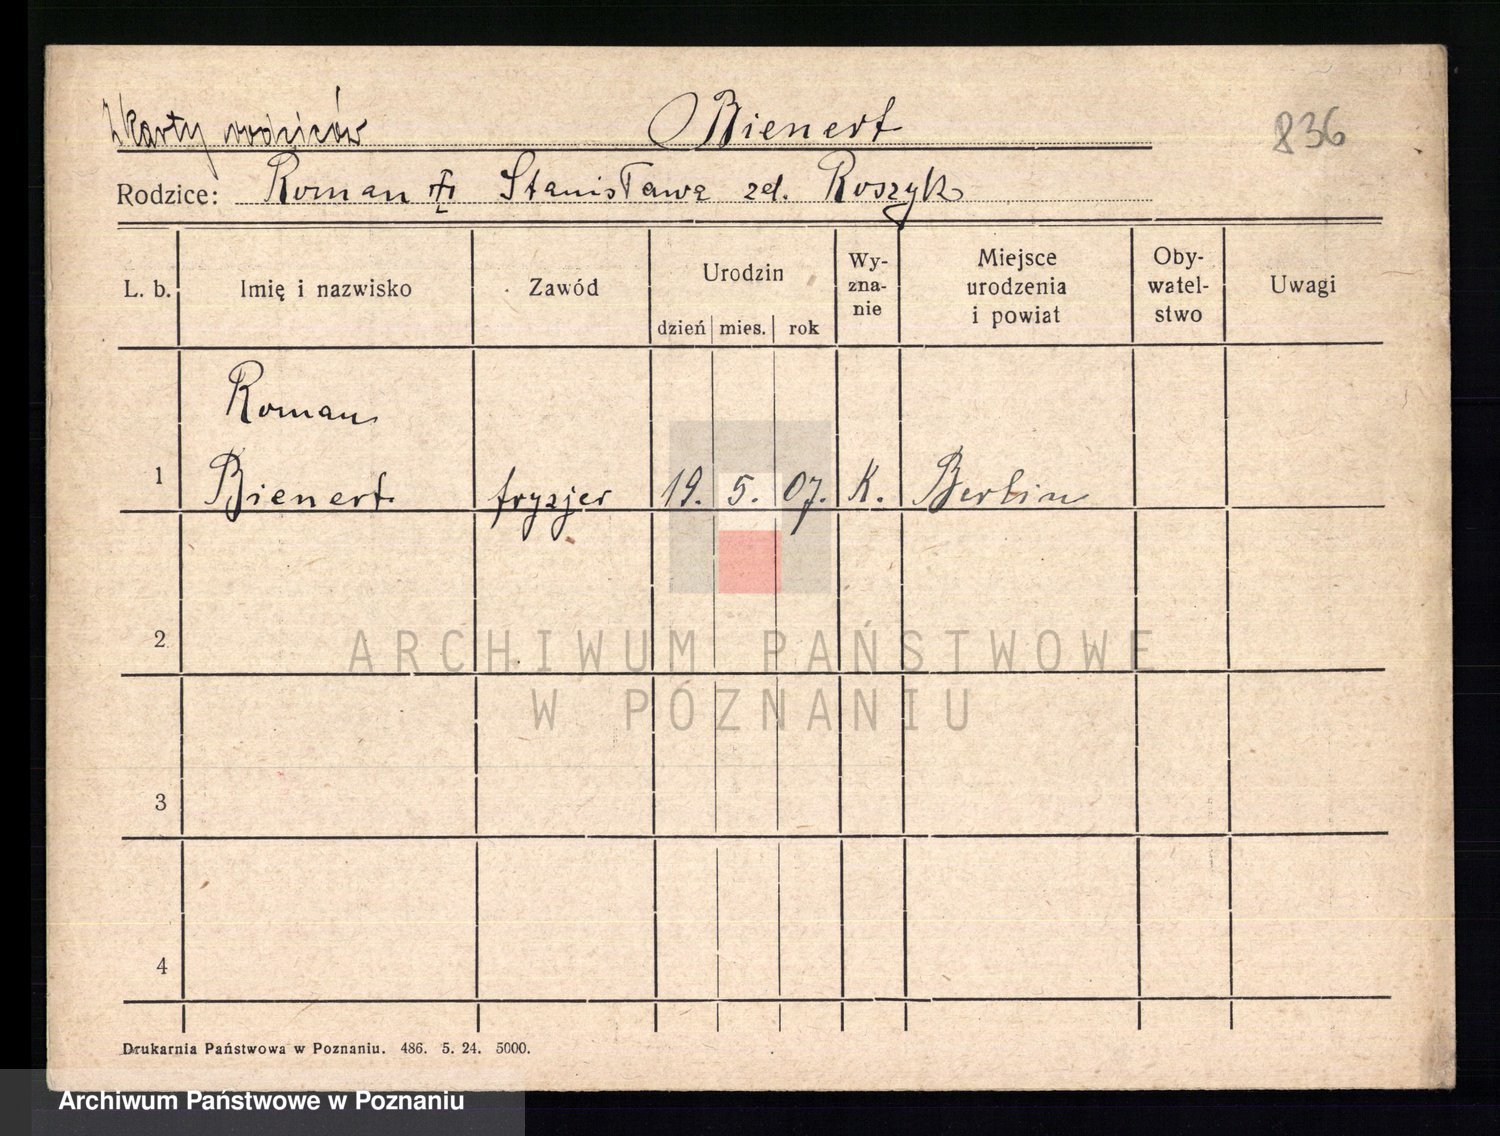 Z karty rodziców Bienert 836
Rodzice: Roman Stanisława zd. Roszyk
L. b. Imię i nazwisko Zawód Urodzin dzień mies. rok Wy-zna-nie Miejsce urodzenia i powiat Oby-watel-stwo Uwagi
Roman
1 Bienert fryzjer 19. 5. 07. K. Berlin
2
ARCHIWUM PAŃSTWOWE
W POZNANIU
3
4
Drukarnia Państwowa w Poznaniu. 486. 5. 24. 5000.
Archiwum Państwowe w Poznaniu